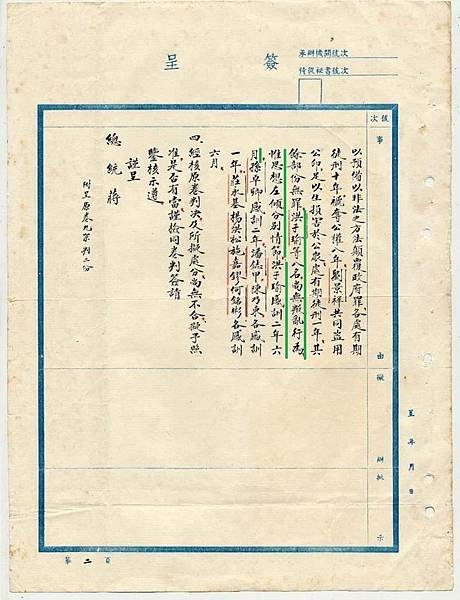 簽呈
承辦機關號次
侍從祕書號次
號次
事由
擬辦
批示
以預備以非法之方法顛覆政府罪各處有期
徒刑十年褫奪公權八年劉景祥共同盜用
公印足以生損害於公眾處有期徒刑一年其
餘部份無罪洪子瑜等八名尚無叛亂行為
惟思想左傾分別情節洪子瑜感訓二年六
月孫阜卿感訓二年潘德甲陳乃東各感訓
一年莊水基楊洪松施嘉鏐何銘彬各感訓
六月
四、經核原卷判決及所擬處分尚無不合擬予照
准是否有當謹檢同卷判簽請
鑒核示遵
謹呈
總統 蔣
附呈原卷九宗判二份
呈 年 月 日
第二頁